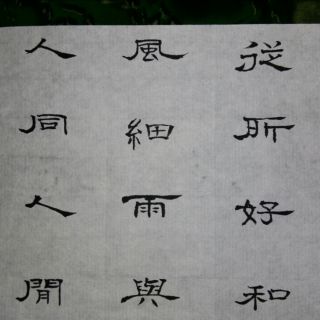 從所好和
風細雨與
人同人閒